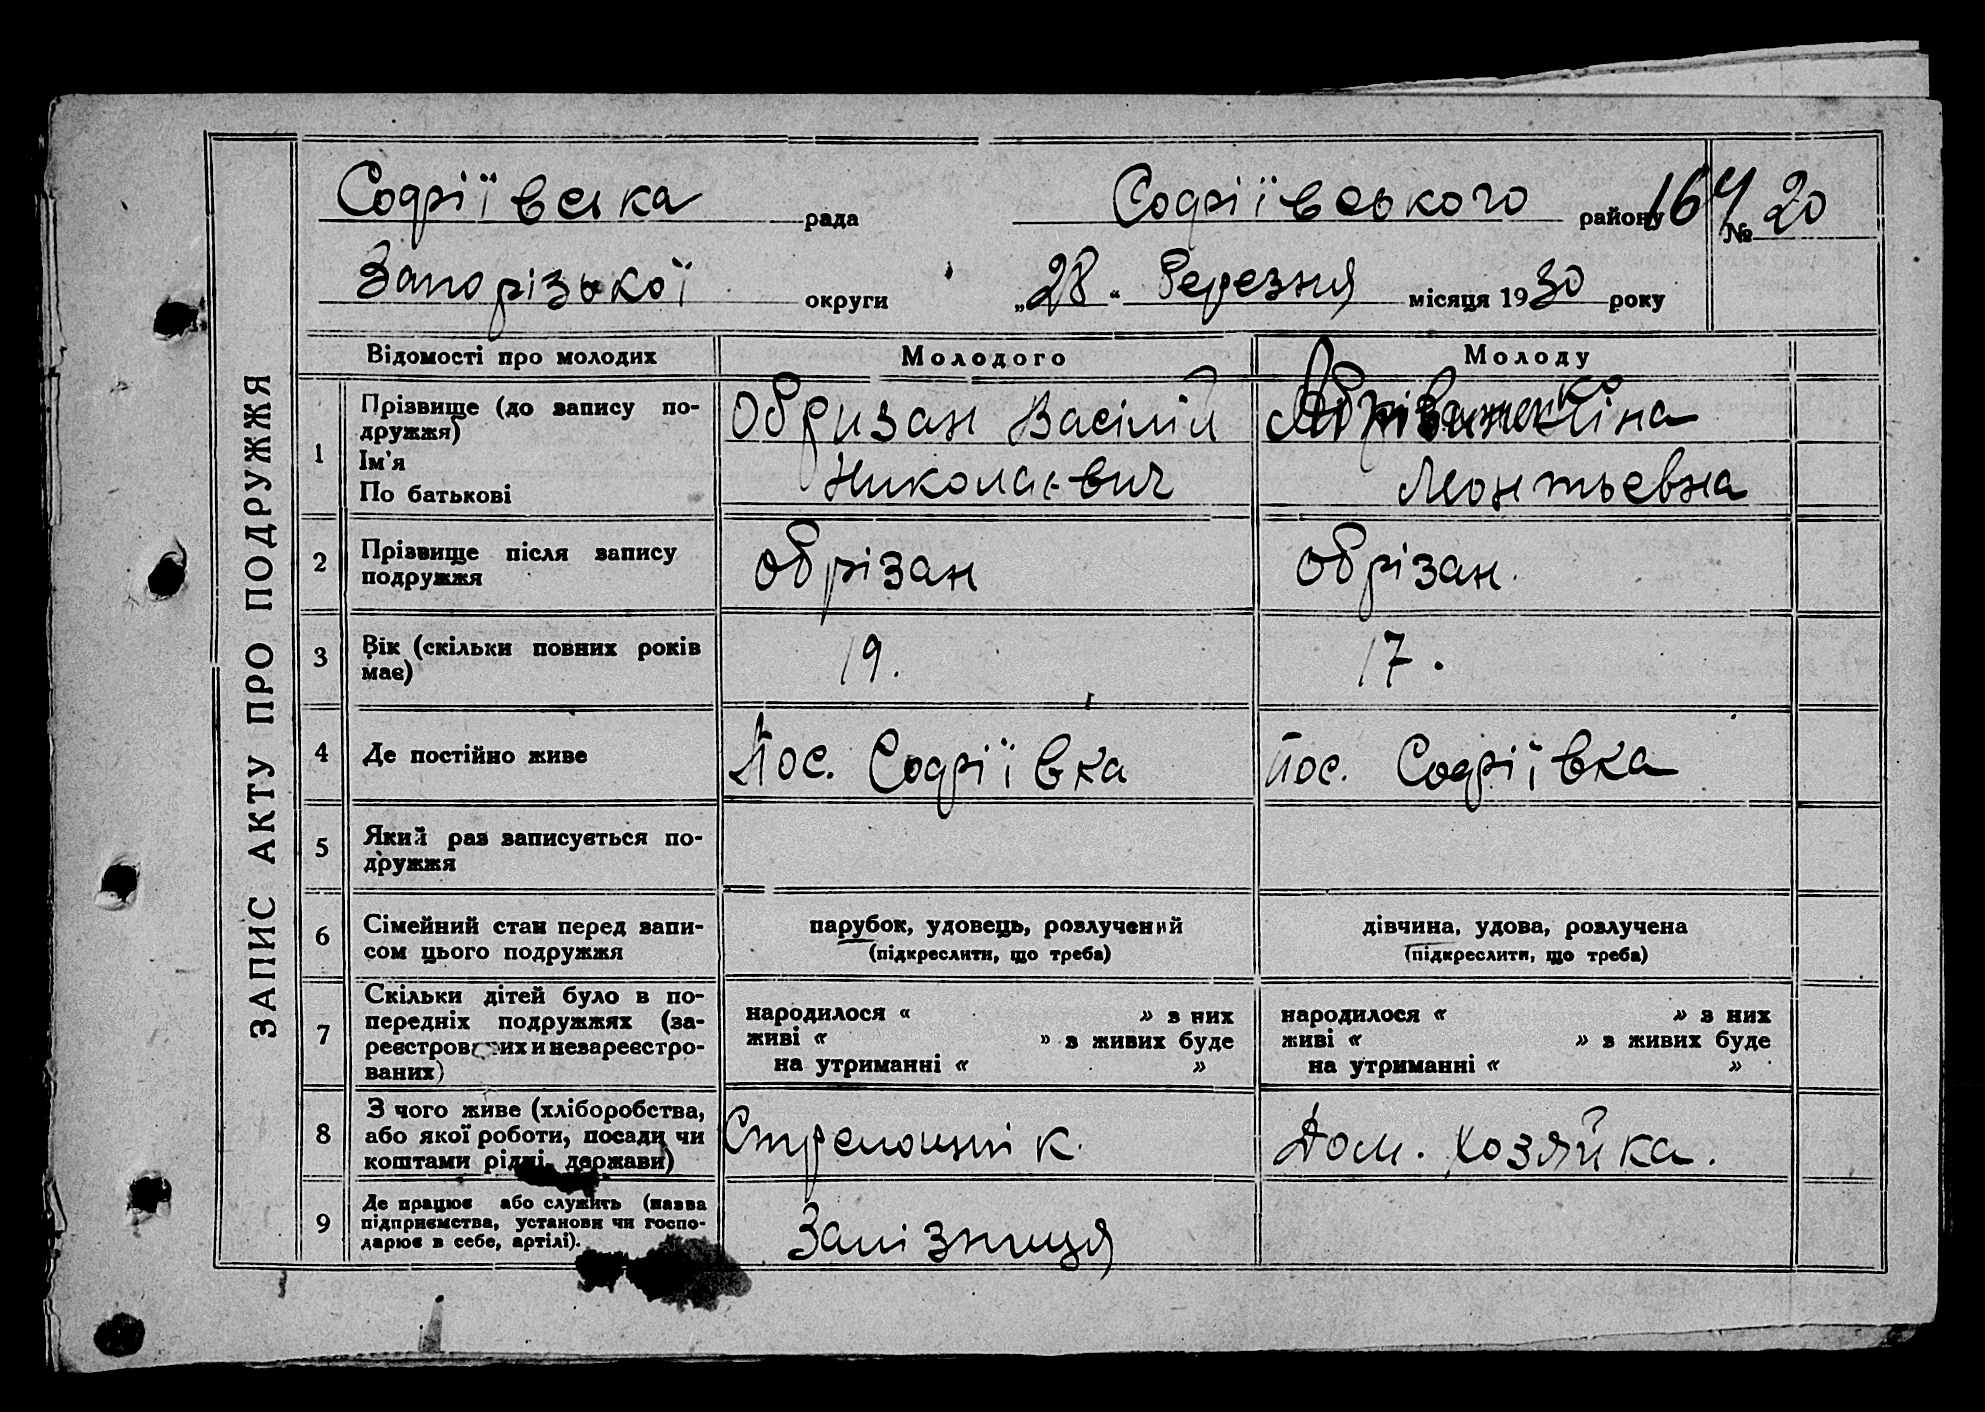 ЗАПИС АКТУ ПРО ПОДРУЖЖЯ
Софіївська рада Софіївського району 164 № 20
Запорізької округи „28“ Березня місяця 1930 року
Відомості про молодих Молодого Молоду
1 Прізвище (до запису подружжя) Ім'я По батькові
Обризан Васілій
Николаевич
Леонтьевна
2 Прізвище після запису подружжя Обрізан Обрізан.
3 Вік (скільки повних років має) 19. 17.
4 Де постійно живе Пос. Софіївка Пос. Софіївка
5 Який раз записується по-
дружжя
6 Сімейний стан перед запи-
сом цього подружжя
парубок, удовець, розлучений
(підкреслити, що треба)
дівчина, удова, розлучена
(підкреслити, що треба)
7 Скільки дітей було в по-
передніх подружжях (за-
реєстрованих и незареєстро-
ваних)
народилося « » з них
живі « » з живих буде
на утриманні « »
народилося « » з них
живі « » з живих буде
на утриманні « »
8 З чого живе (хліборобства,
або якої роботи, посади чи
коштами рідні, держави)
Дом. хозяйка.
9 Де працює або служить (назва
підприємства, установи чи госпо-
дарює в себе, артілі).
Залізниця